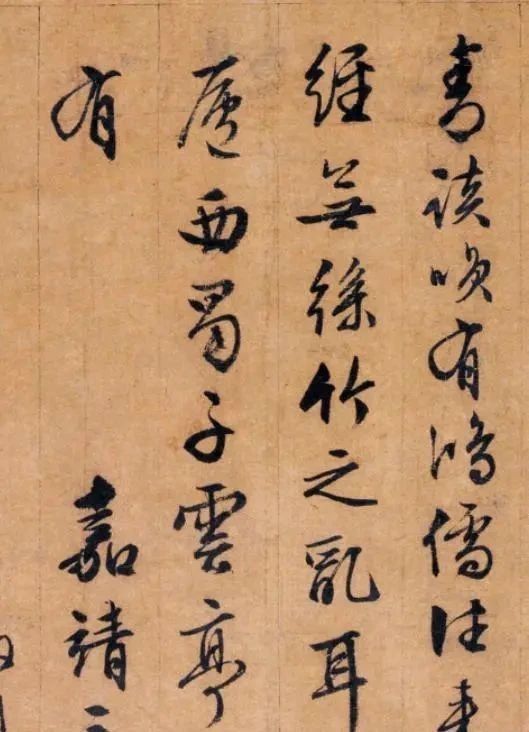 青談咲有鴻儒往来
經無絲竹之亂耳
廬西蜀子雲亭
有 嘉靖